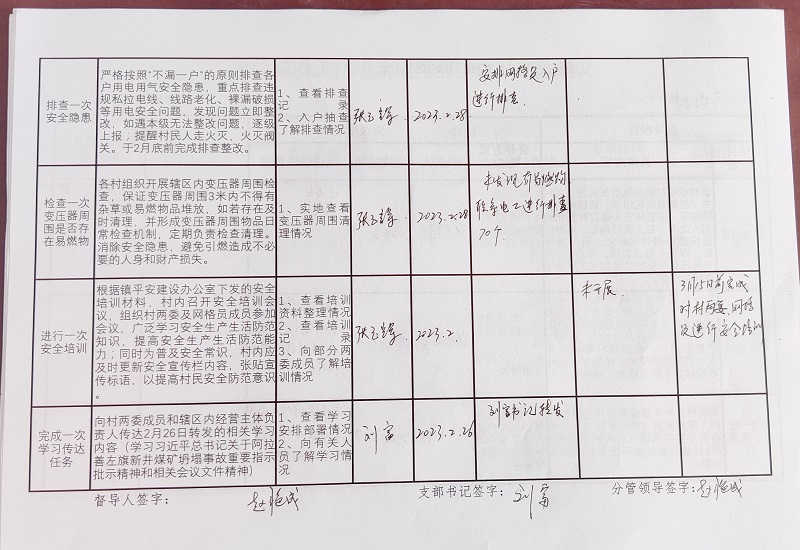 排查一次
安全隐患
严格按照“不漏一户”的原则排查各
户用电用气安全隐患，重点排查违
规私拉电线、线路老化、裸漏破损
等用电安全问题，发现问题立即整
改，如遇本级无法整改问题，逐级
上报；提醒村民人走火灭，火灭阀
关。于2月底前完成排查整改。
1、查看排查
记录
2、入户抽查
了解排查情况
2023.2.28
安排网格员入户
进行排查.
检查一次
变压器周
围是否存
在易燃物
各村组织开展辖区内变压器周围检
查，保证变压器周围3米内不得有
杂草或易燃物品堆放，如若存在及
时清理，并形成变压器周围物品日
常检查机制，定期负责检查清理。
消除安全隐患，避免引燃造成不必
要的人身和财产损失。
1、实地查看
变压器周围清
理情况
2023.2.28
未发现有易燃物
联系电工进行排查
70个
进行一次
安全培训
根据镇平安建设办公室下发的安全
培训材料，村内召开安全培训会
议，组织村两委及网格员成员参加
会议，广泛学习安全生产生活防范
知识，提高安全生产生活防范能
力；同时为普及安全常识，村内应
及时更新安全宣传栏内容，张贴宣
传标语，以提高村民安全防范意识
。
1、查看培训
资料整理情况
2、查看培训
记录
3、向部分两
委成员了解培
训情况
2023.2.
未开展.
3月15日前完成
对村两委、网格
员进行安全培训
完成一次
学习传达
任务
向村两委成员和辖区内经营主体负
责人传达2月26日转发的相关学习
内容（学习习近平总书记关于阿拉
善左旗新井煤矿坍塌事故重要指示
批示精神和相关会议文件精神）
1、查看学习
安排部署情况
2、向有关人
员了解学习情
况
刘富
2023.2.26
刘富书记转发
督导人签字：
支部书记签字：刘富
分管领导签字：